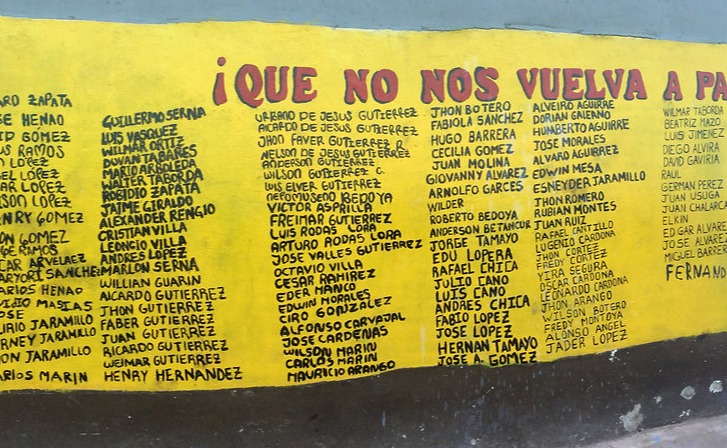 ¡QUE NO NOS VUELVA A PA
ARO ZAPATA
HENAO
GÓMEZ
RAMOS
LÓPEZ
LOPEZ
LOPEZ
GOMEZ
GOMEZ
RAMOS
ARVELAEZ
SANCHEZ
HENAO
MASIAS
JOSE
JARAMILLO
JARAMILLO
JARAMILLO
MARIN
GUILLERMO SERNA
LUIS VASQUEZ
WILMAR ORTIZ
DUVAN TABARES
MARIO ARBOLEDA
WALTER TABORDA
ROBIDIO ZAPATA
JAIME GIRALDO
ALEXANDER RENGIO
CRISTIAN VILLA
LEONCIO VILLA
ANDRES LOPEZ
MARLON SERNA
WILLIAN GUARIN
AICARDO GUTIERREZ
JHON GUTIERREZ
FABER GUTIERREZ
JUAN GUTIERREZ
RICARDO GUTIERREZ
WEIMAR GUTIERREZ
HENRY HERNANDEZ
URBANO DE JESUS GUTIERREZ
AICARDO DE JESUS GUTIERREZ
JHON FAVER GUTIERREZ R.
NELSON DE JESUS GUTIERREZ
ANDERSON GUTIERREZ
WILSON GUTIERREZ C.
LUIS ELVER GUTIERREZ
NEPOMUSENO BEDOYA
VICTOR ASPRILLA
FREIMAR GUTIERREZ
LUIS RODAS LORA
ARTURO RODAS LORA
JOSE VALLES GUTIERREZ
OCTAVIO VILLA
CESAR RAMIREZ
EDER MANCO
EDWIN MORALES
CIRO GONZALEZ
ALFONSO CARVAJAL
JOSE CARDENAS
WILSON MARIN
CARLOS MARIN
MAURICIO ARANGO
JHON BOTERO
FABIOLA SANCHEZ
HUGO BARRERA
CECILIA GOMEZ
JUAN MOLINA
GIOVANNY ALVAREZ
ARNOLFO GARCES
WILDER
ROBERTO BEDOYA
ANDERSON BETANCUR
JORGE TAMAYO
EDU LOPERA
RAFAEL CHICA
JULIO CANO
LUIS CANO
ANDRES CHICA
FABIO LOPEZ
JOSE LOPEZ
HERNAN TAMAYO
JOSE A. GOMEZ
ALVEIRO AGUIRRE
DORIAN GALEANO
HUMBERTO AGUIRRE
JOSE MORALES
ALVARO AGUIRREZ
EDWIN MESA
ESNEYDER JARAMILLO
JHON ROMERO
RUBIAN MONTES
JUAN RUIZ
RAFAEL CANTILLO
EUGENIO CARDONA
JHON CORTEZ
FREDY CORTEZ
YIRA SEGURA
OSCAR CARDONA
LEONARDO CARDONA
JHON ARANGO
WILSON BOTERO
FREDY MONTOYA
ALONSO ANGEL
JADER LOPEZ
WILMAR TABORDA
BEATRIZ MAZO
LUIS JIMENEZ
DIEGO ALVIRA
DAVID GAVIRIA
RAUL
GERMAN PEREZ
JUAN USUGA
JUAN CHALARCA
ELKIN
EDGAR ALVARE
JOSE ALVARE
MIGUEL BARRER
FERNAND